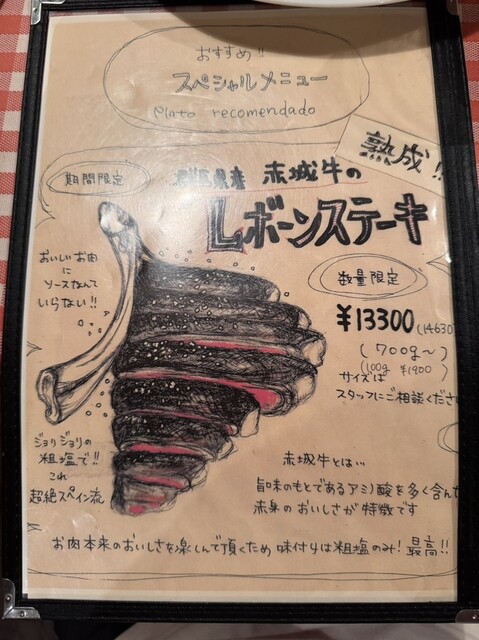 おすすめ!!
スペシャルメニュー
Plato recomendado
熟成!!
期間限定
県産 赤城牛の
Lボーンステーキ
おいしいお肉
に
ソースなんて
いらない!!
数量限定
¥13300(14630
(700g〜)
(100g ¥1900)
サイズは
スタッフにご相談くださ
ジョリジョリの
粗塩で!!
これ
超絶スペイン流
赤城牛とは…
旨味のもとであるアミノ酸を多く含んだ
赤身のおいしさが特徴です
お肉本来のおいしさを楽しんで頂くため 味付けは粗塩のみ! 最高!!